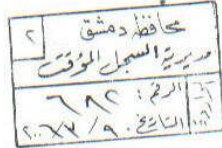 محافظة دمشق
مديرية السجل المؤقت
٢
الرقم: ٦٨٢
التاريخ: